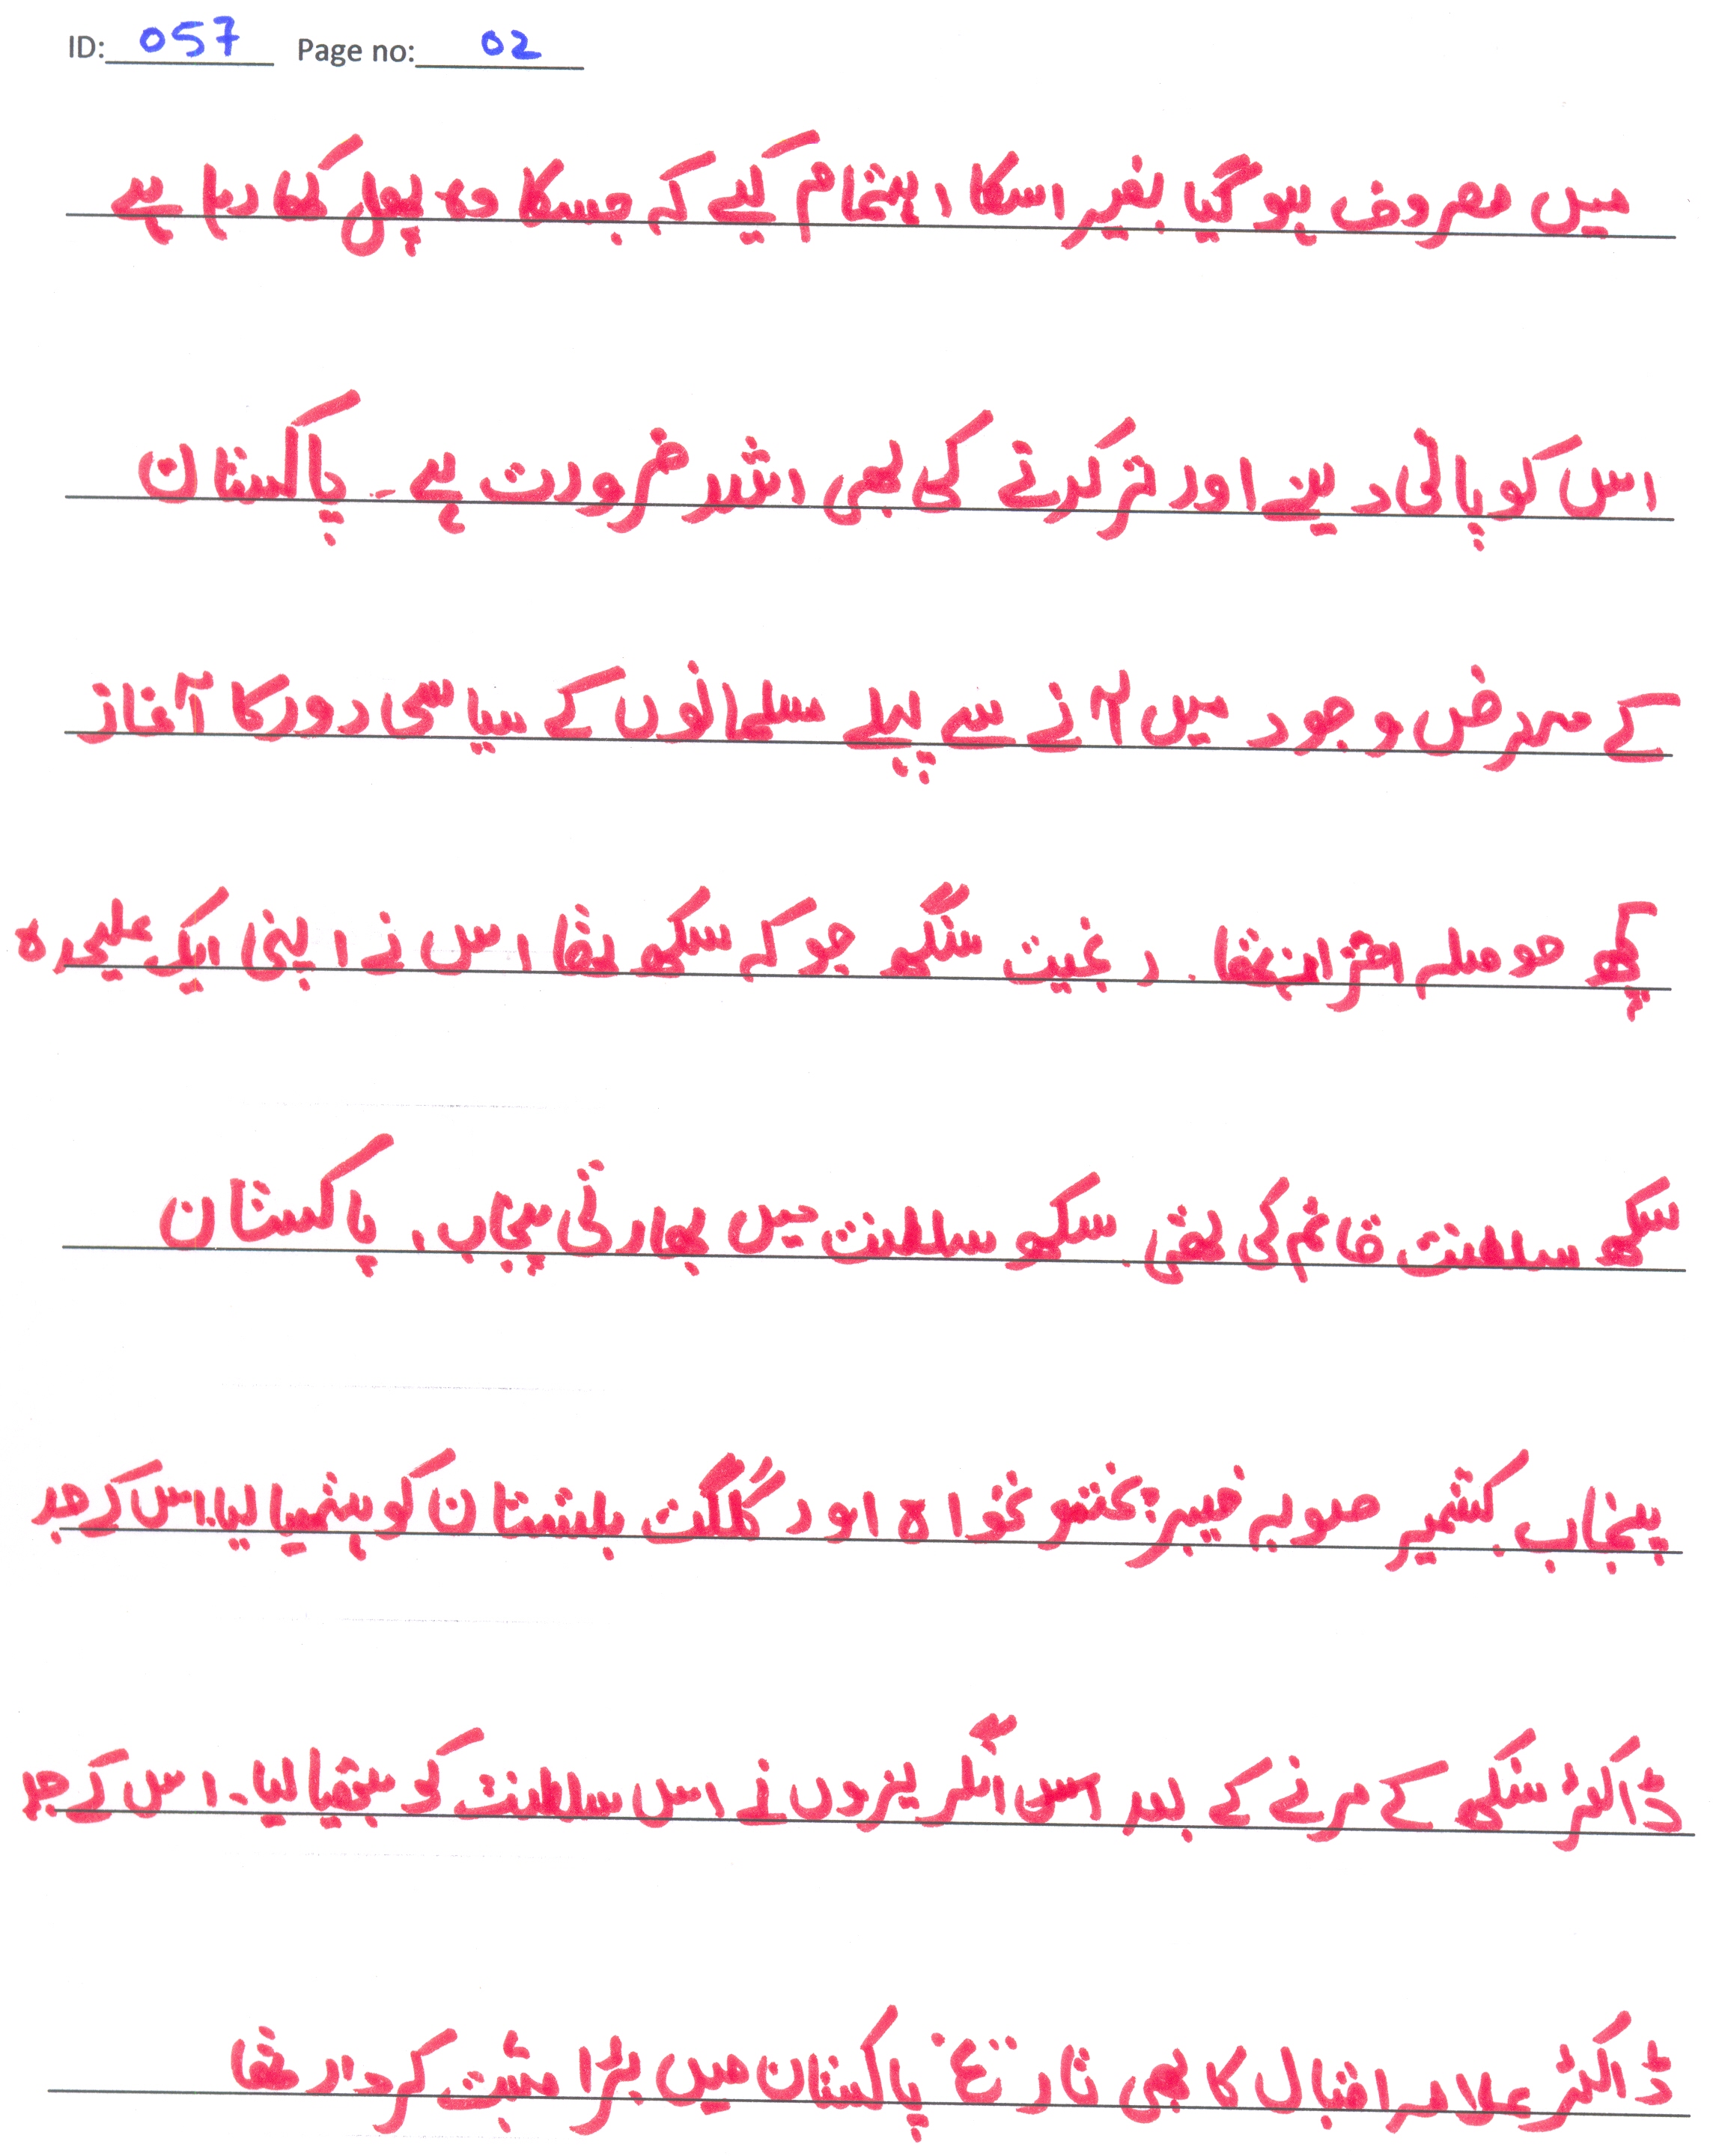 ID: 057 Page no: 02
میں مصروف ہو گیا بغیر اسکا اہتمام کیے کہ جسکا وہ پھل کھا رہا ہے
اس کو پانی دینے اور تر کرنے کی بھی اشد ضرورت ہے۔ پاکستان
کے معرض وجود میں آنے سے پہلے مسلمانوں کے سیاسی دور کا آغاز
کچھ حوصلہ افزا نہ تھا۔ رنجیت سنگھ جو کہ سکھ تھا اس نے اپنی ایک علیحدہ
سکھ سلطنت قائم کی تھی۔ سکھ سلطنت میں بھارتی پنجاب، پاکستان
پنجاب کشمیر صوبہ خیبر پختو نخواہ اور گلگت بلتستان کو ہتھیا لیا۔ اس کے بعد
ڈاکٹر سنگھ کے مرنے کے بعد انگریزوں نے اس سلطنت کو ہتھیا لیا۔ اس کے بعد
ڈاکٹر علامہ اقبال کا بھی تاریخ پاکستان میں بڑا مثبت کردار تھا